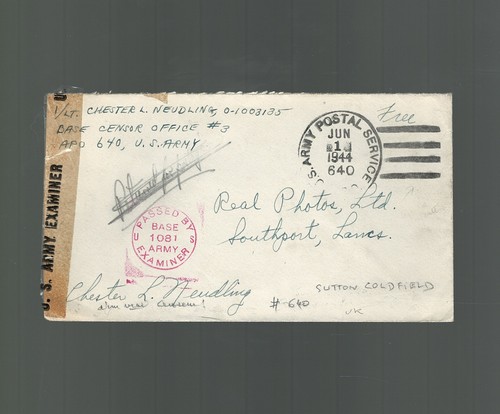 1/LT. CHESTER L. NEUDLING, O-1003135
BASE CENSOR OFFICE #3
APO 640, U.S. ARMY
Free
U.S. ARMY POSTAL SERVICE
JUN
1
1944
640
U. S. ARMY EXAMINER
PASSED BY
U S
BASE
1081
ARMY
EXAMINER
Real Photos, Ltd.
Southport, Lancs.
Chester L. Neudling
#640
SUTTON COLDFIELD
UK